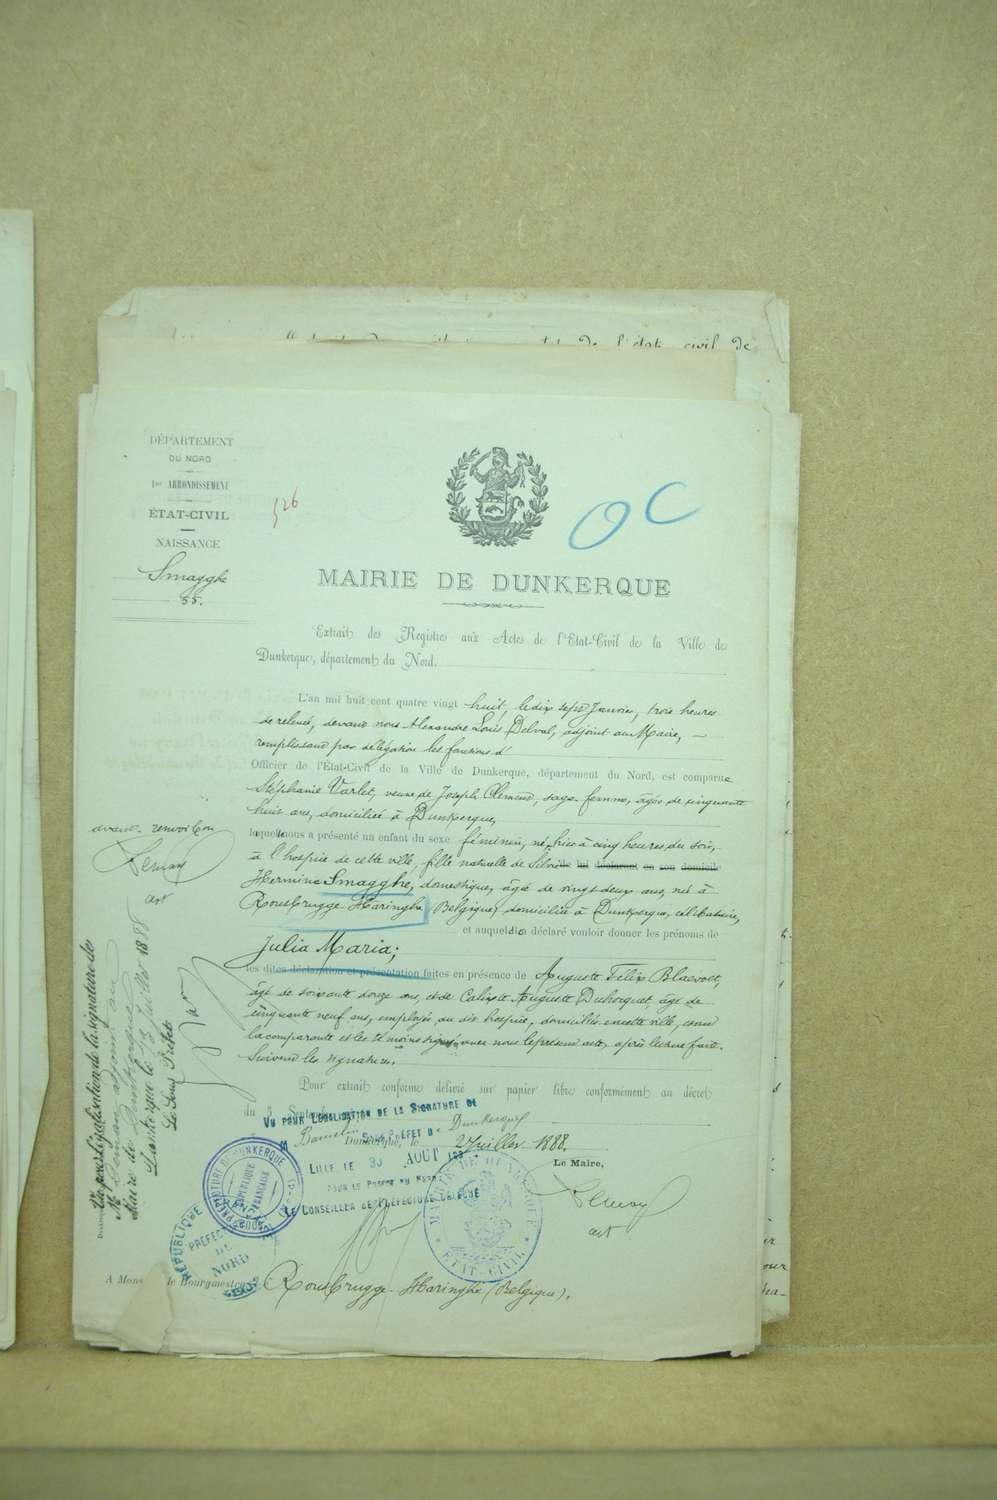 de l'état civil de
DÉPARTEMENT
DU NORD
1er ARRONDISSEMENT
ÉTAT-CIVIL
NAISSANCE
Smagghe
55.
526
OC
MAIRIE DE DUNKERQUE
Extrait des Registres aux Actes de l'Etat-Civil de la Ville de
Dunkerque, département du Nord.
L'an mil huit cent quatre vingt huit, le dix sept Janvier, trois heures
de relevée, devant nous Alexandre Louis Delval, adjoint au Maire,
remplissant par délégation les fonctions d'
Officier de l'État-Civil de la Ville de Dunkerque, département du Nord, est comparue
Stéphanie Varlet, veuve de Joseph Clément, sage femme, âgée de cinquante
huit ans, domiciliée à Dunkerque,
laquelle nous a présenté un enfant du sexe féminin, né, hier à cinq heures du soir,
à l'hospice de cette ville, fille naturelle de Silvie lui déclarant en son domicile
Hermine Smagghe, domestique, âgée de vingt deux ans, née à
Rousbrugge-Haringhe (Belgique) domiciliée à Dunkerque, célibataire,
et auquel elle a déclaré vouloir donner les prénoms de
Julia Maria;
les dites déclaration et présentation faites en présence de Auguste Félix Blaevoet,
âgé de soixante douze ans, et de Calixte Auguste Duhocquet, âgé de
cinquante neuf ans, employés au dit hospice, domiciliés en cette ville, 
la comparante et les témoins signé avec nous le présent acte, après lecture faite.
Suivent les signatures.
Pour extrait conforme délivré sur papier libre conformément au décret
du 3 Septembre
Dunkerque, le 2 Juillet 1888.
Le Maire,
adt
VU POUR LÉGALISATION DE LA SIGNATURE DE
M Bamelin SOUS PRÉFET De Dunkerque
LILLE LE 30 AOUT 188
POUR LE PRÉFET DU NORD
LE CONSEILLER DE PRÉFECTURE DÉLÉGUÉ
SOUS-PRÉFECTURE DE DUNKERQUE
RÉPUBLIQUE FRANÇAISE
RÉPUBLIQUE
PRÉFECTURE
DU
NORD
MAIRIE DE DUNKERQUE
ÉTAT-CIVIL
A Monsieur le Bourgmestre
Rousbrugge-Haringhe (Belgique).
avant renvoi bon
adt
Vu pour légalisation de la signature de
M. Leman adjoint au
Maire de Dunkerque
Dunkerque le 13 Juillet 1888
Le Sous Préfet